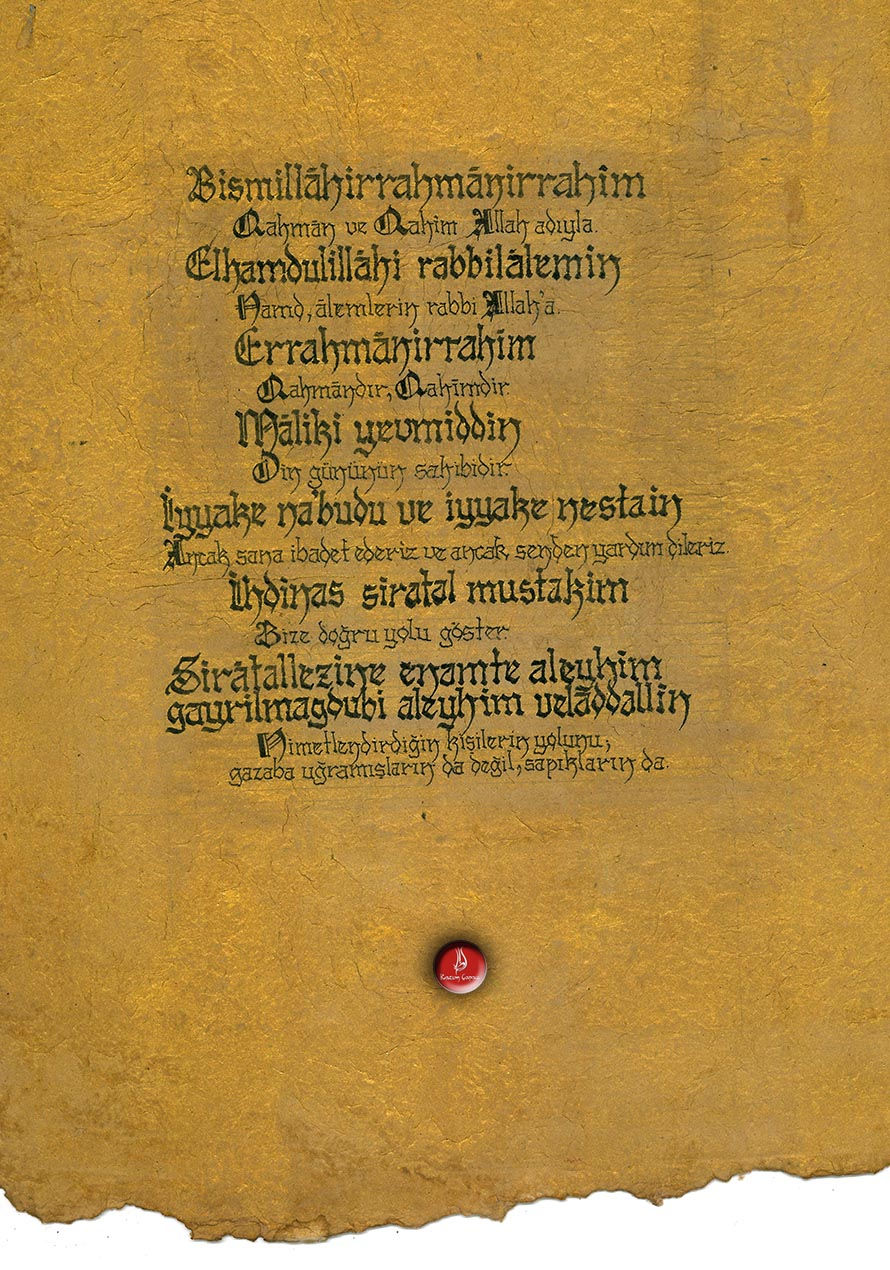 Bismillāhirrahmānirrahîm
Rahmān ve Rahim Allah adıyla.
Elhamdulillāhi rabbilālemin
Hamd, ālemlerin rabbi Allah'a.
Errahmānirrahîm
Rahmāndır, Rahîmdir.
Māliki yevmiddin
Din gününün sahibidir.
İyyake na'budu ve iyyake nestain
Ancak sana ibadet ederiz ve ancak senden yardım dileriz.
İhdinas siratal mustakim
Bize doğru yolu göster.
Sirātallezine enamte aleyhim
gayrilmagdubi aleyhim velāddallîn
Nimetlendirdiğin kişilerin yolunu;
gazaba uğramışların da değil, sapıkların da.